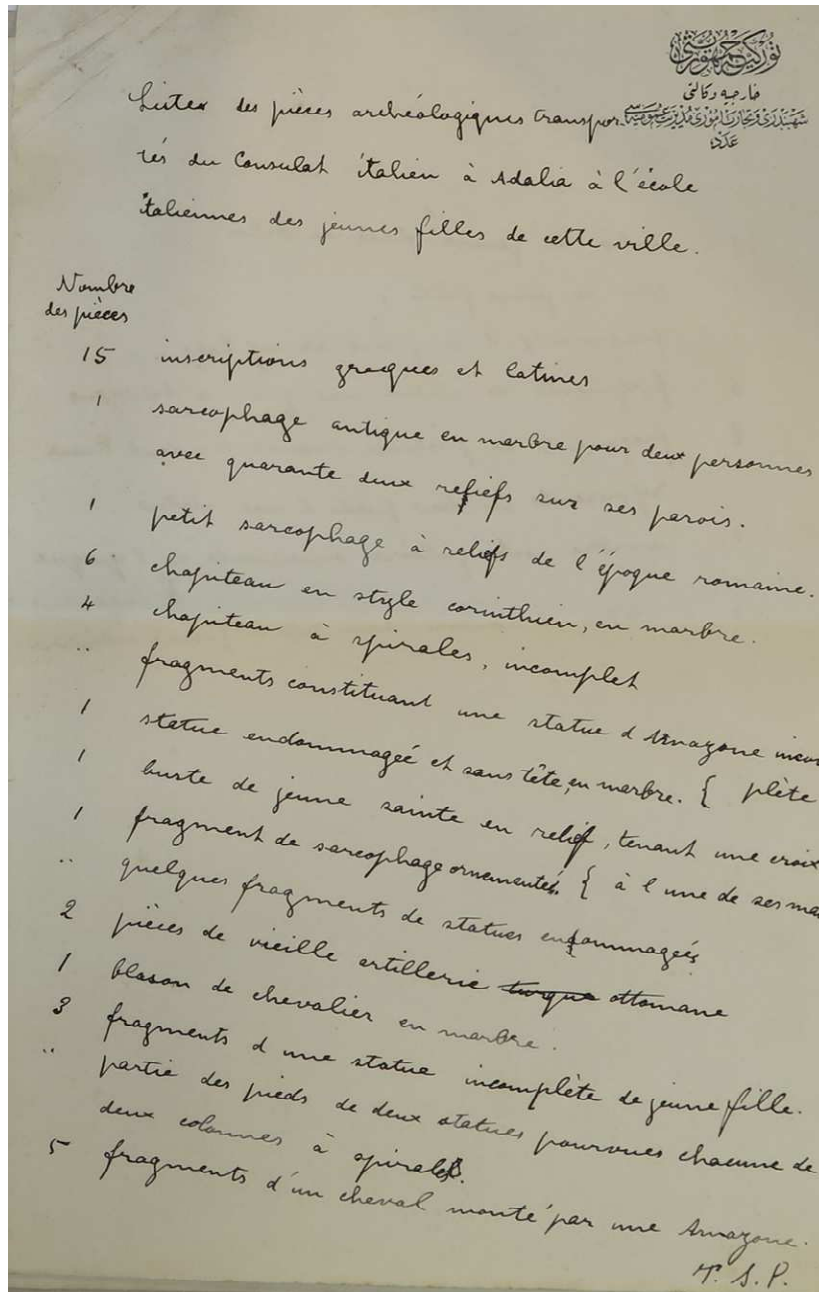 توركيا جمهوريتى
خارجيه وكالتى
شهبندرى و تجارت امورى مديريت عموميه سى
عدد
Listes des pièces archéologiques transpor
tés du Consulat italien à Adalia à l'école
italiennes des jeunes filles de cette ville.
Nombre
des pièces
15 inscriptions grecques et latines
1 sarcophage antique en marbre pour deux personnes
avec quarante deux reliefs sur ses parois.
1 petit sarcophage à reliefs de l'époque romaine.
6 chapiteau en style corinthien, en marbre.
4 chapiteau à spirales, incomplet
.. fragments constituant une statue d Amazone incom
1 statue endommagée et sans tête, en marbre. { plète
1 buste de jeune sainte en relief, tenant une croix
1 fragment de sarcophage ornementé. { à l'une de ses ma
.. quelques fragments de statues endommagées
2 pièces de vieille artillerie turque ottomane
1 blason de chevalier en marbre.
3 fragments d une statue incomplète de jeune fille.
.. partie des pieds de deux statues pourvues chacune de
deux colonnes à spirales.
5 fragments d'un cheval monté par une Amazone.
T. S. P.